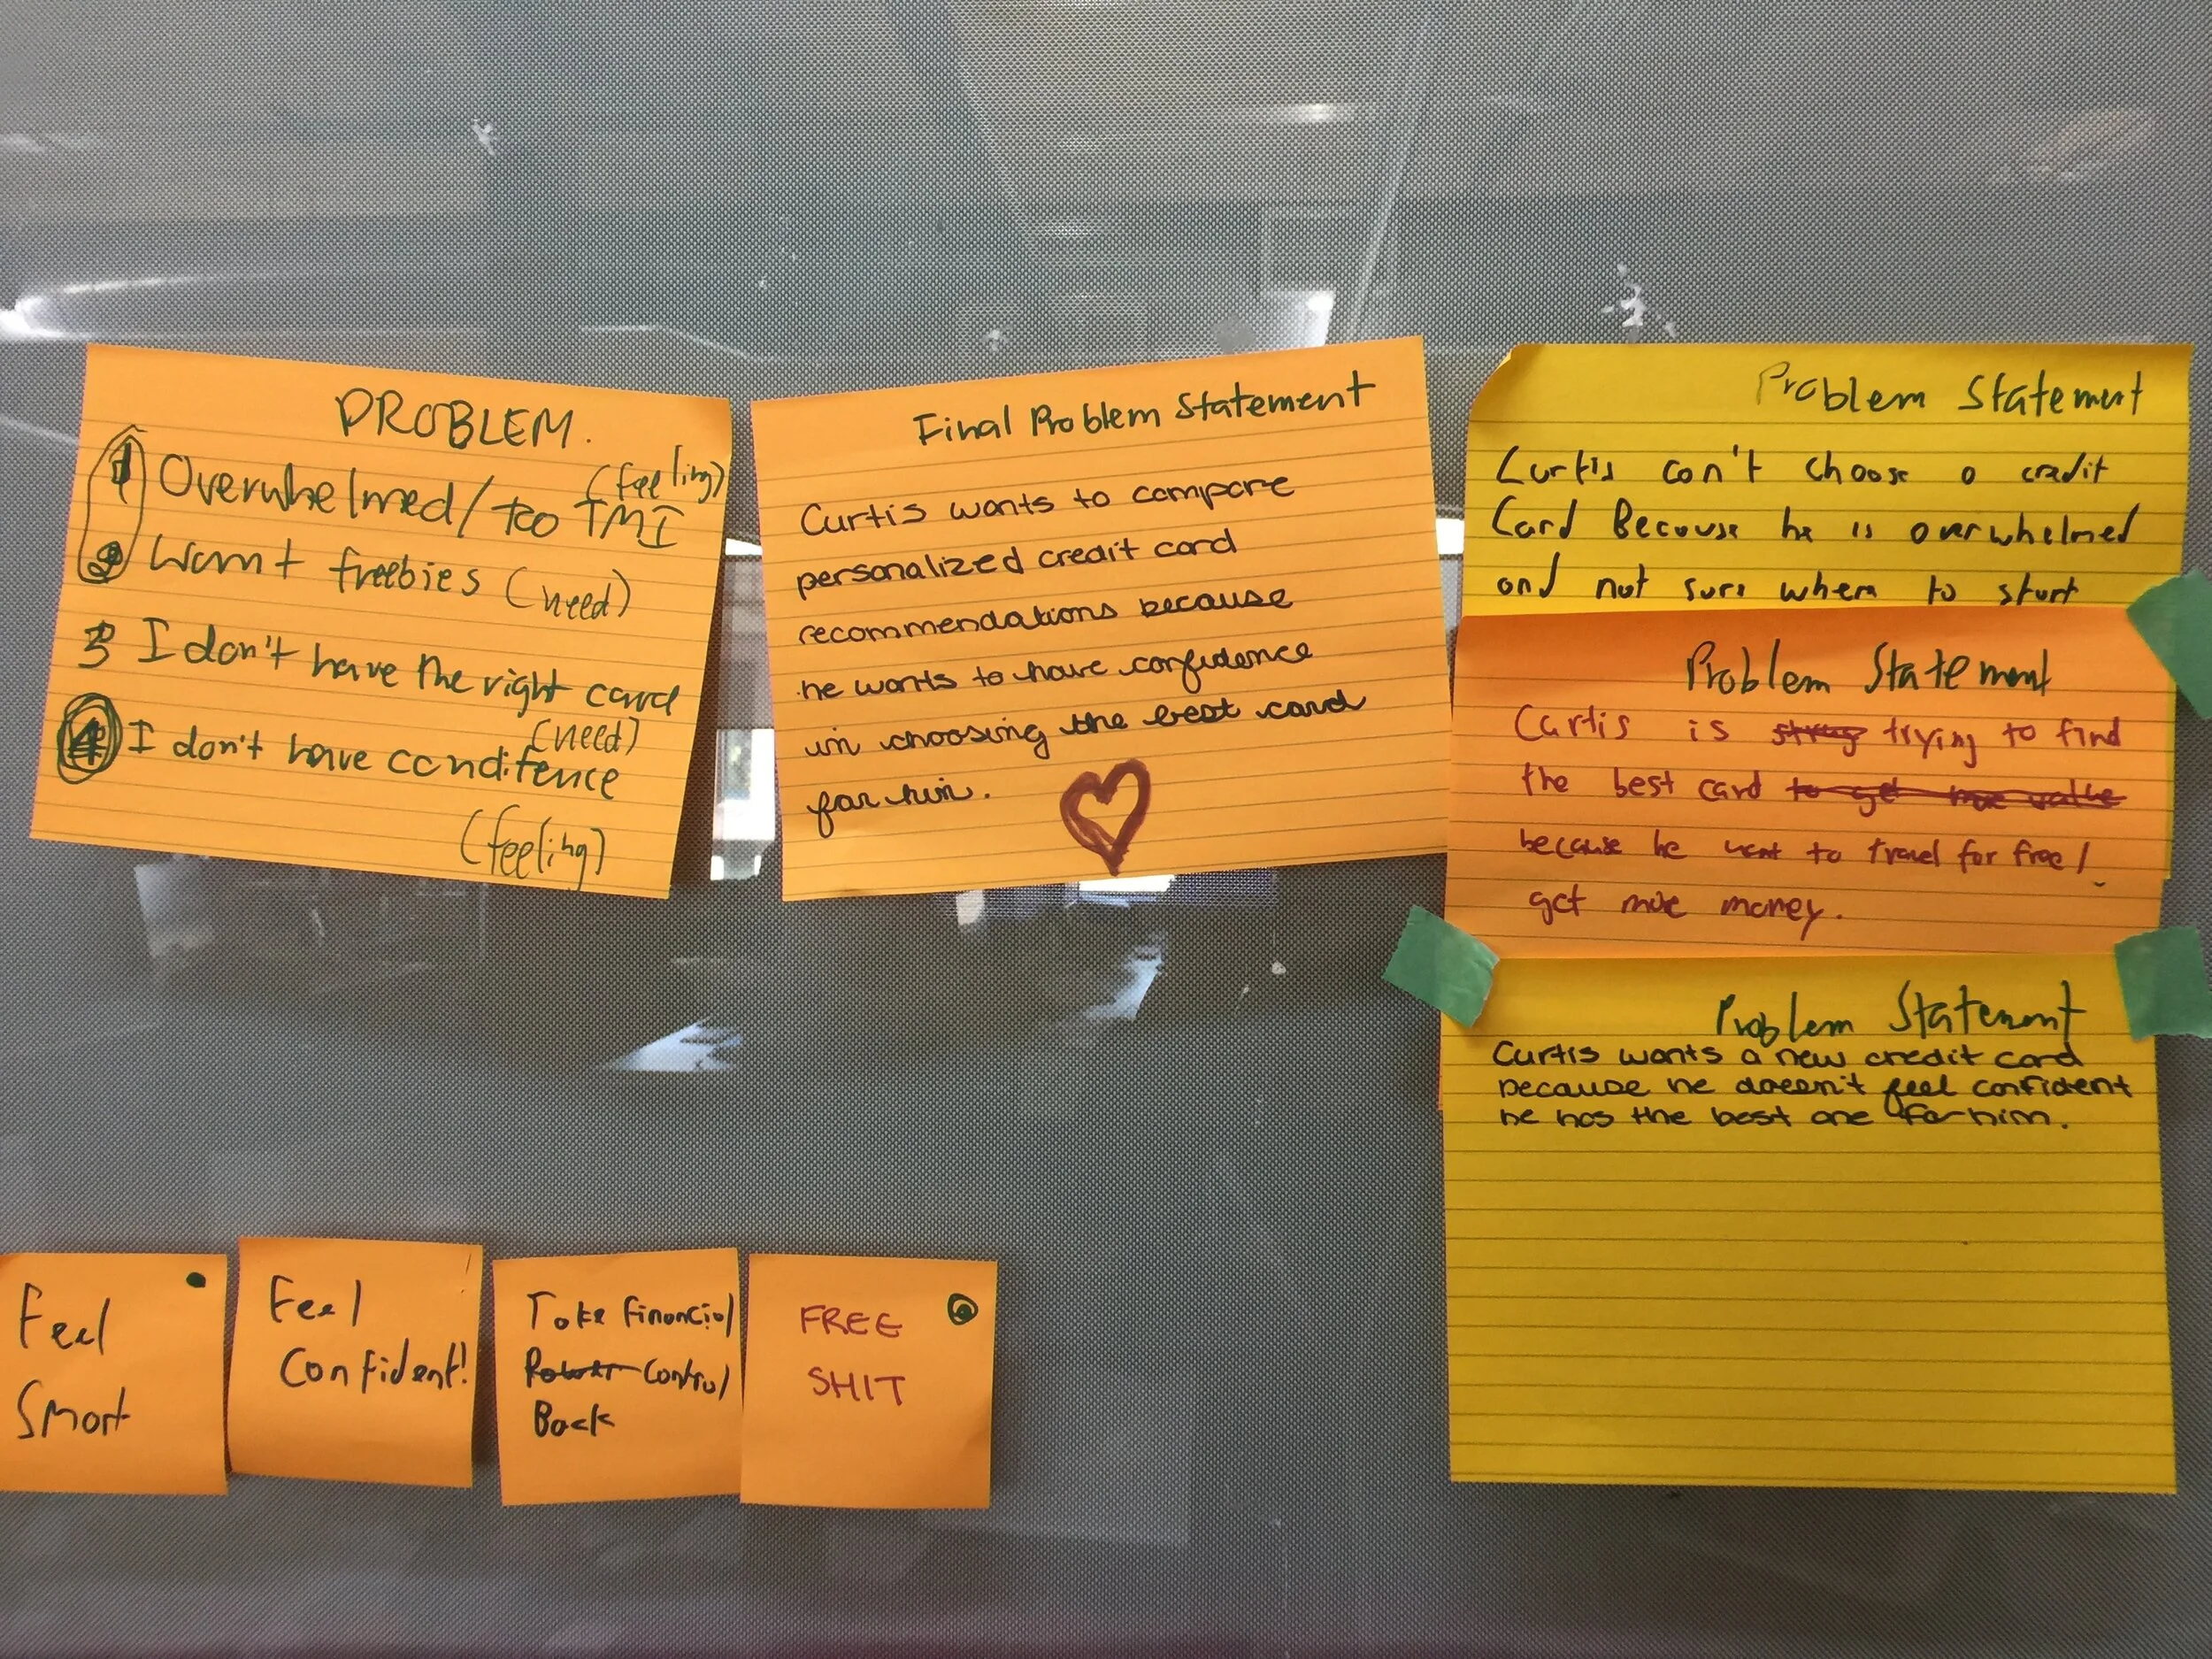 PROBLEM.
1 Overwhelmed/too TMI (feeling)
2 Want freebies (need)
3 I don't have the right card
(need)
4 I don't have condifence
(feeling)
Final Problem Statement
Curtis wants to compare
personalized credit card
recommendations because
he wants to have confidence
in choosing the best card
for him.
Problem Statement
Curtis can't choose a credit
Card Because he is overwhelmed
and not sure where to start
Problem Statement
Curtis is trying to find
the best card to get more value
because he want to travel for free/
get more money.
Problem Statement
Curtis wants a new credit card
because he doesn't feel confident
he has the best one for him.
Feel
Smart
Feel
Confident!
Take financial
Power Control
Back
FREE
SHIT